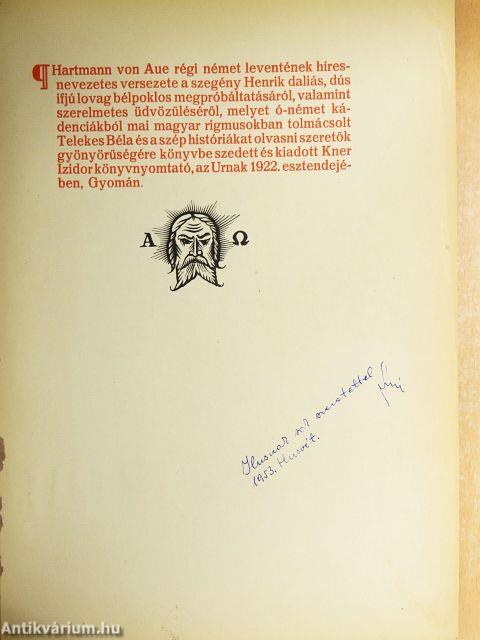 ¶ Hartmann von Aue régi német leventének híres-
nevezetes versezete a szegény Henrik daliás, dús
ifjú lovag bélpoklos megpróbáltatásáról, valamint
szerelmetes üdvözüléséről, melyet ó-német ká-
denciákból mai magyar rigmusokban tolmácsolt
Telekes Béla és a szép históriákat olvasni szeretők
gyönyörűségére könyvbe szedett és kiadott Kner
Izidor könyvnyomtató, az Urnak 1922. esztendejé-
ben, Gyomán.
A Ω
Ilusnak sok szeretettel
1953. Husvét.
Antikvárium.hu